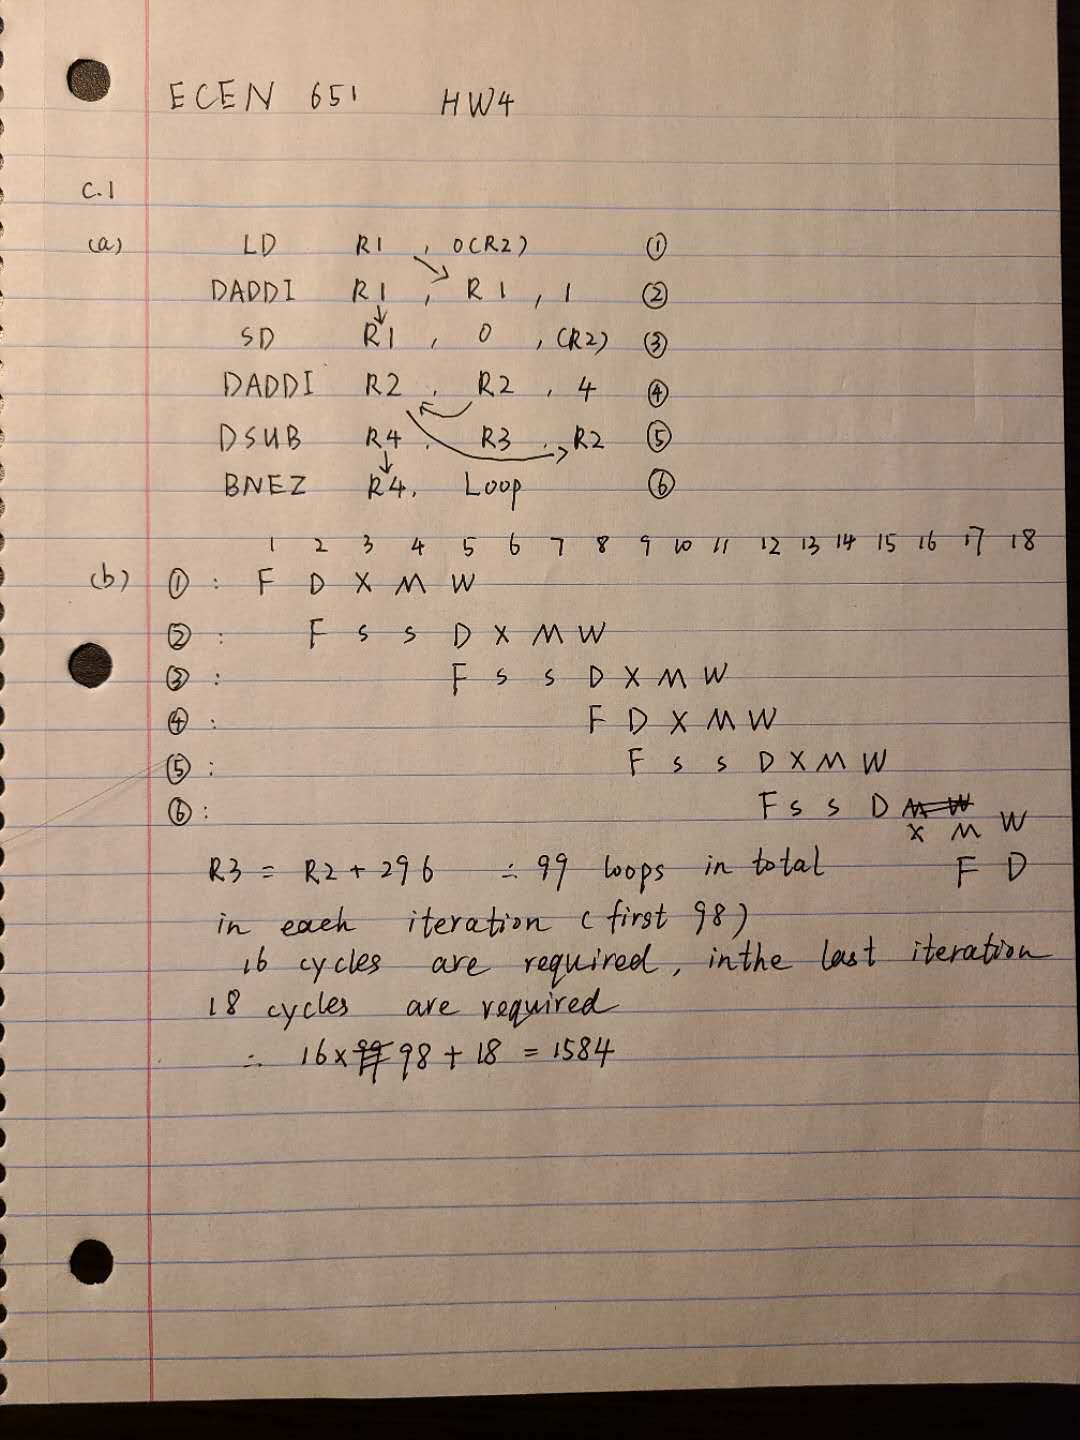 ECEN 651 HW4
C.1
(a) LD R1 , 0(R2) ①
DADDI R1 , R1 , 1 ②
SD R1 , 0 , (R2) ③
DADDI R2 , R2 , 4 ④
DSUB R4 , R3 , R2 ⑤
BNEZ R4, Loop ⑥
1 2 3 4 5 6 7 8 9 10 11 12 13 14 15 16 17 18
(b) ① : F D X M W
② : F s s D X M W
③ : F s s D X M W
④ : F D X M W
⑤ : F s s D X M W
⑥ : F s s D M W
X M W
R3 = R2 + 296 ∴ 99 loops in total F D
in each iteration (first 98)
16 cycles are required, in the last iteration
18 cycles are required
∴ 16 × 99 98 + 18 = 1584